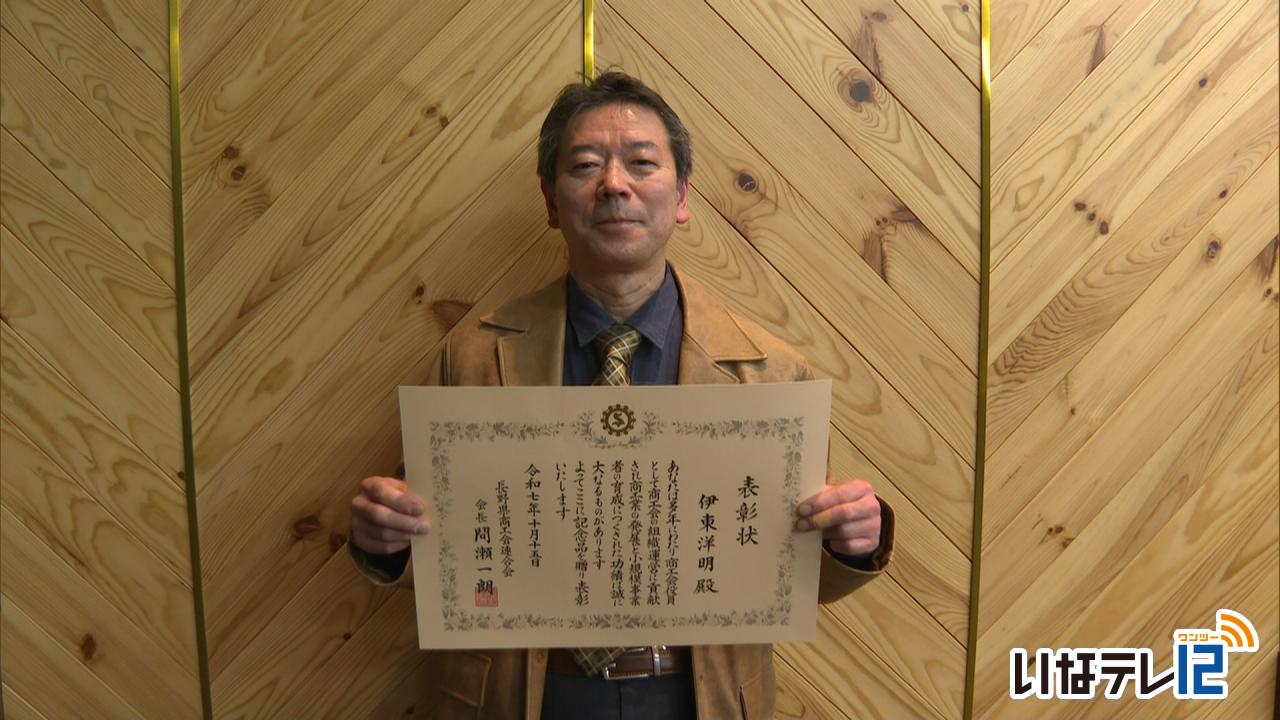 表彰状
伊東洋明殿
あなたは多年にわたり商工会役員
として商工会の組織運営に貢献
され商工業の発展と小規模事業
者の育成につくされた功績は誠に
大なるものがあります
よってここに記念品を贈り表彰
いたします
令和七年十月十五日
長野県商工会連合会
会長 間瀬一朗
ワンツー
いなテレ12